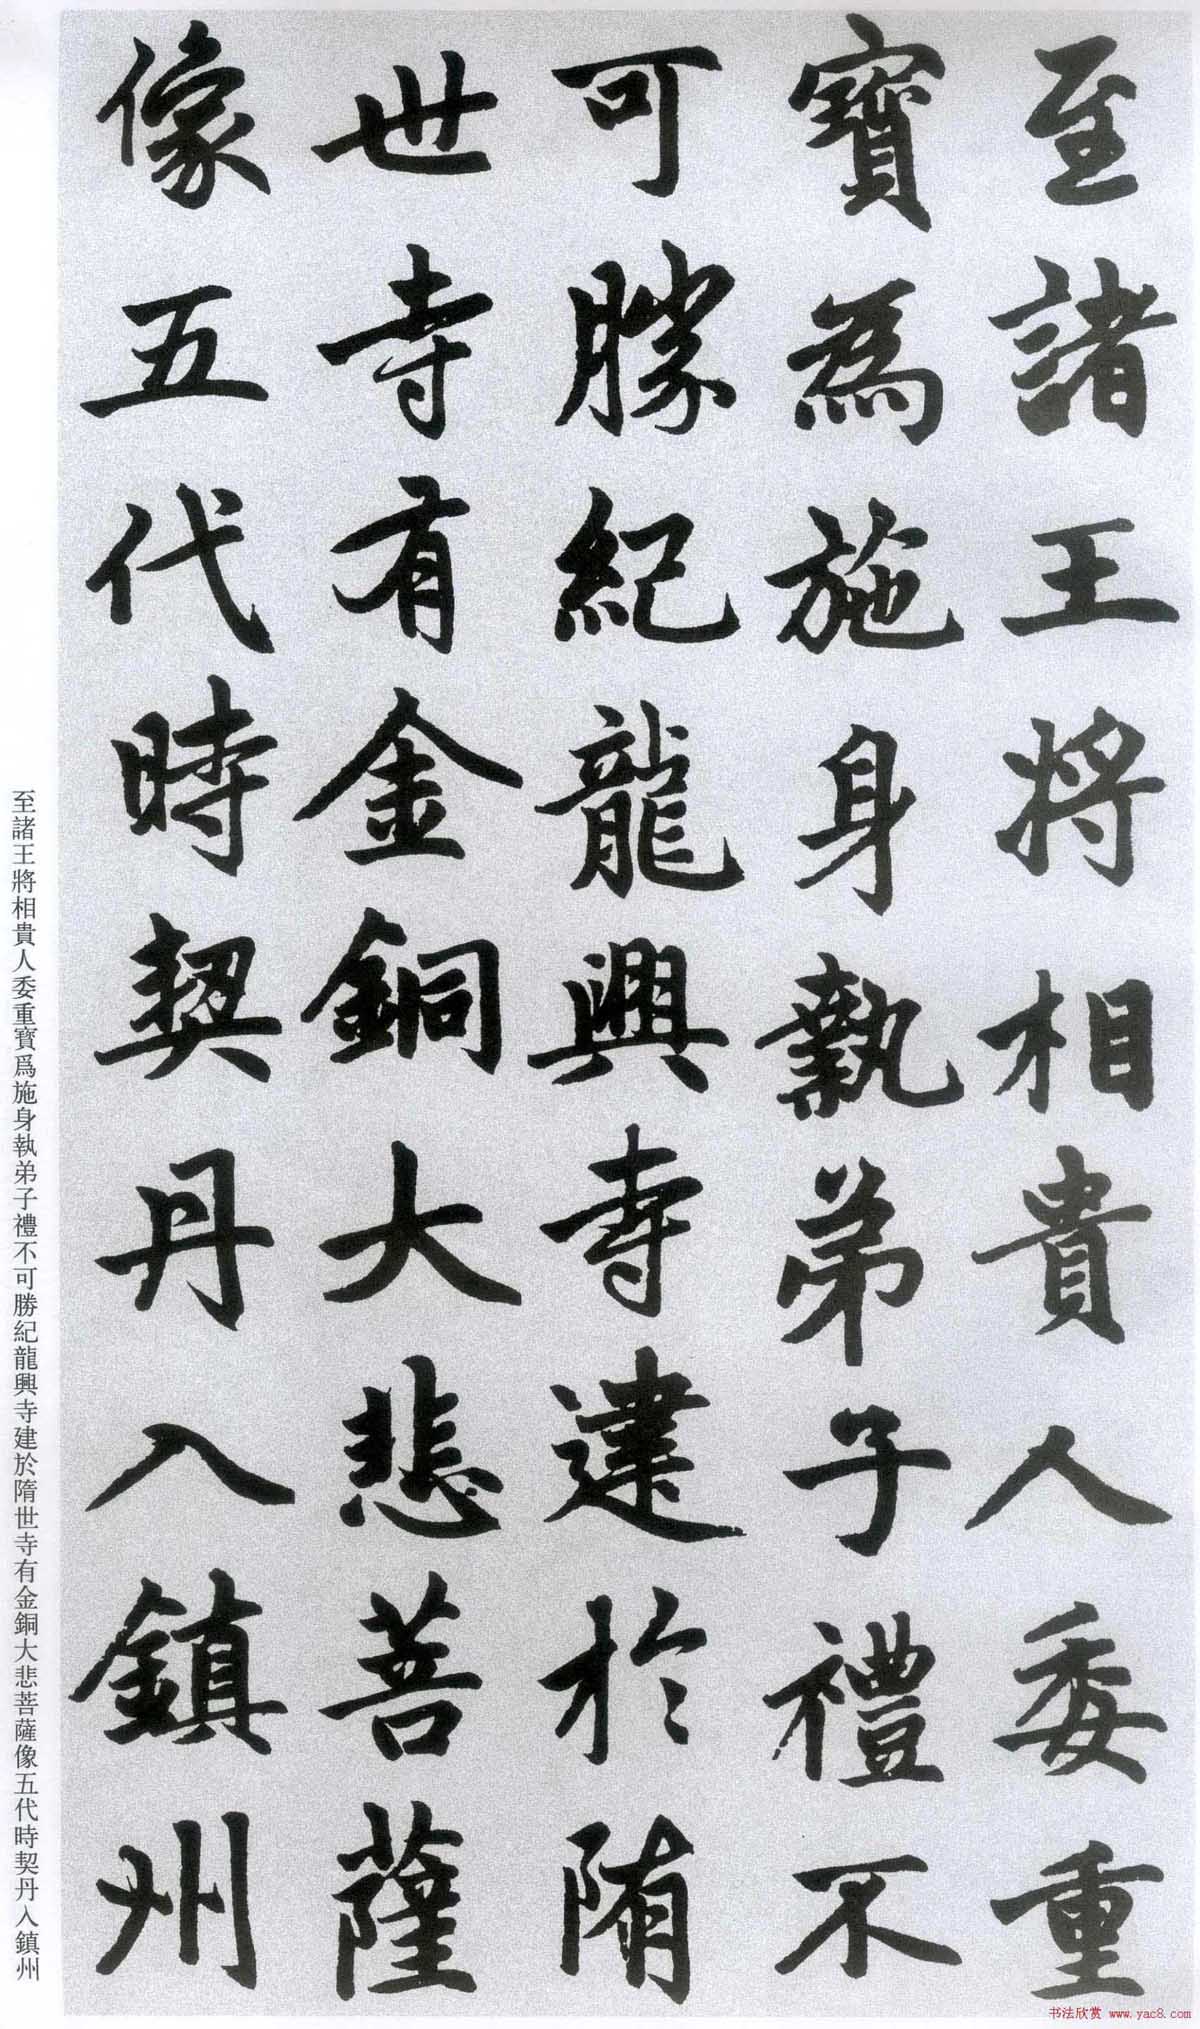 至諸王将相貴人委重
寶為施身執弟子禮不
可勝紀龍興寺建於隋
世寺有金銅大悲菩薩
像五代時契丹入鎮州
至諸王將相貴人委重寶爲施身執弟子禮不可勝紀龍興寺建於隋世寺有金銅大悲菩薩像五代時契丹入鎮州
书法欣赏 www.yac8.com